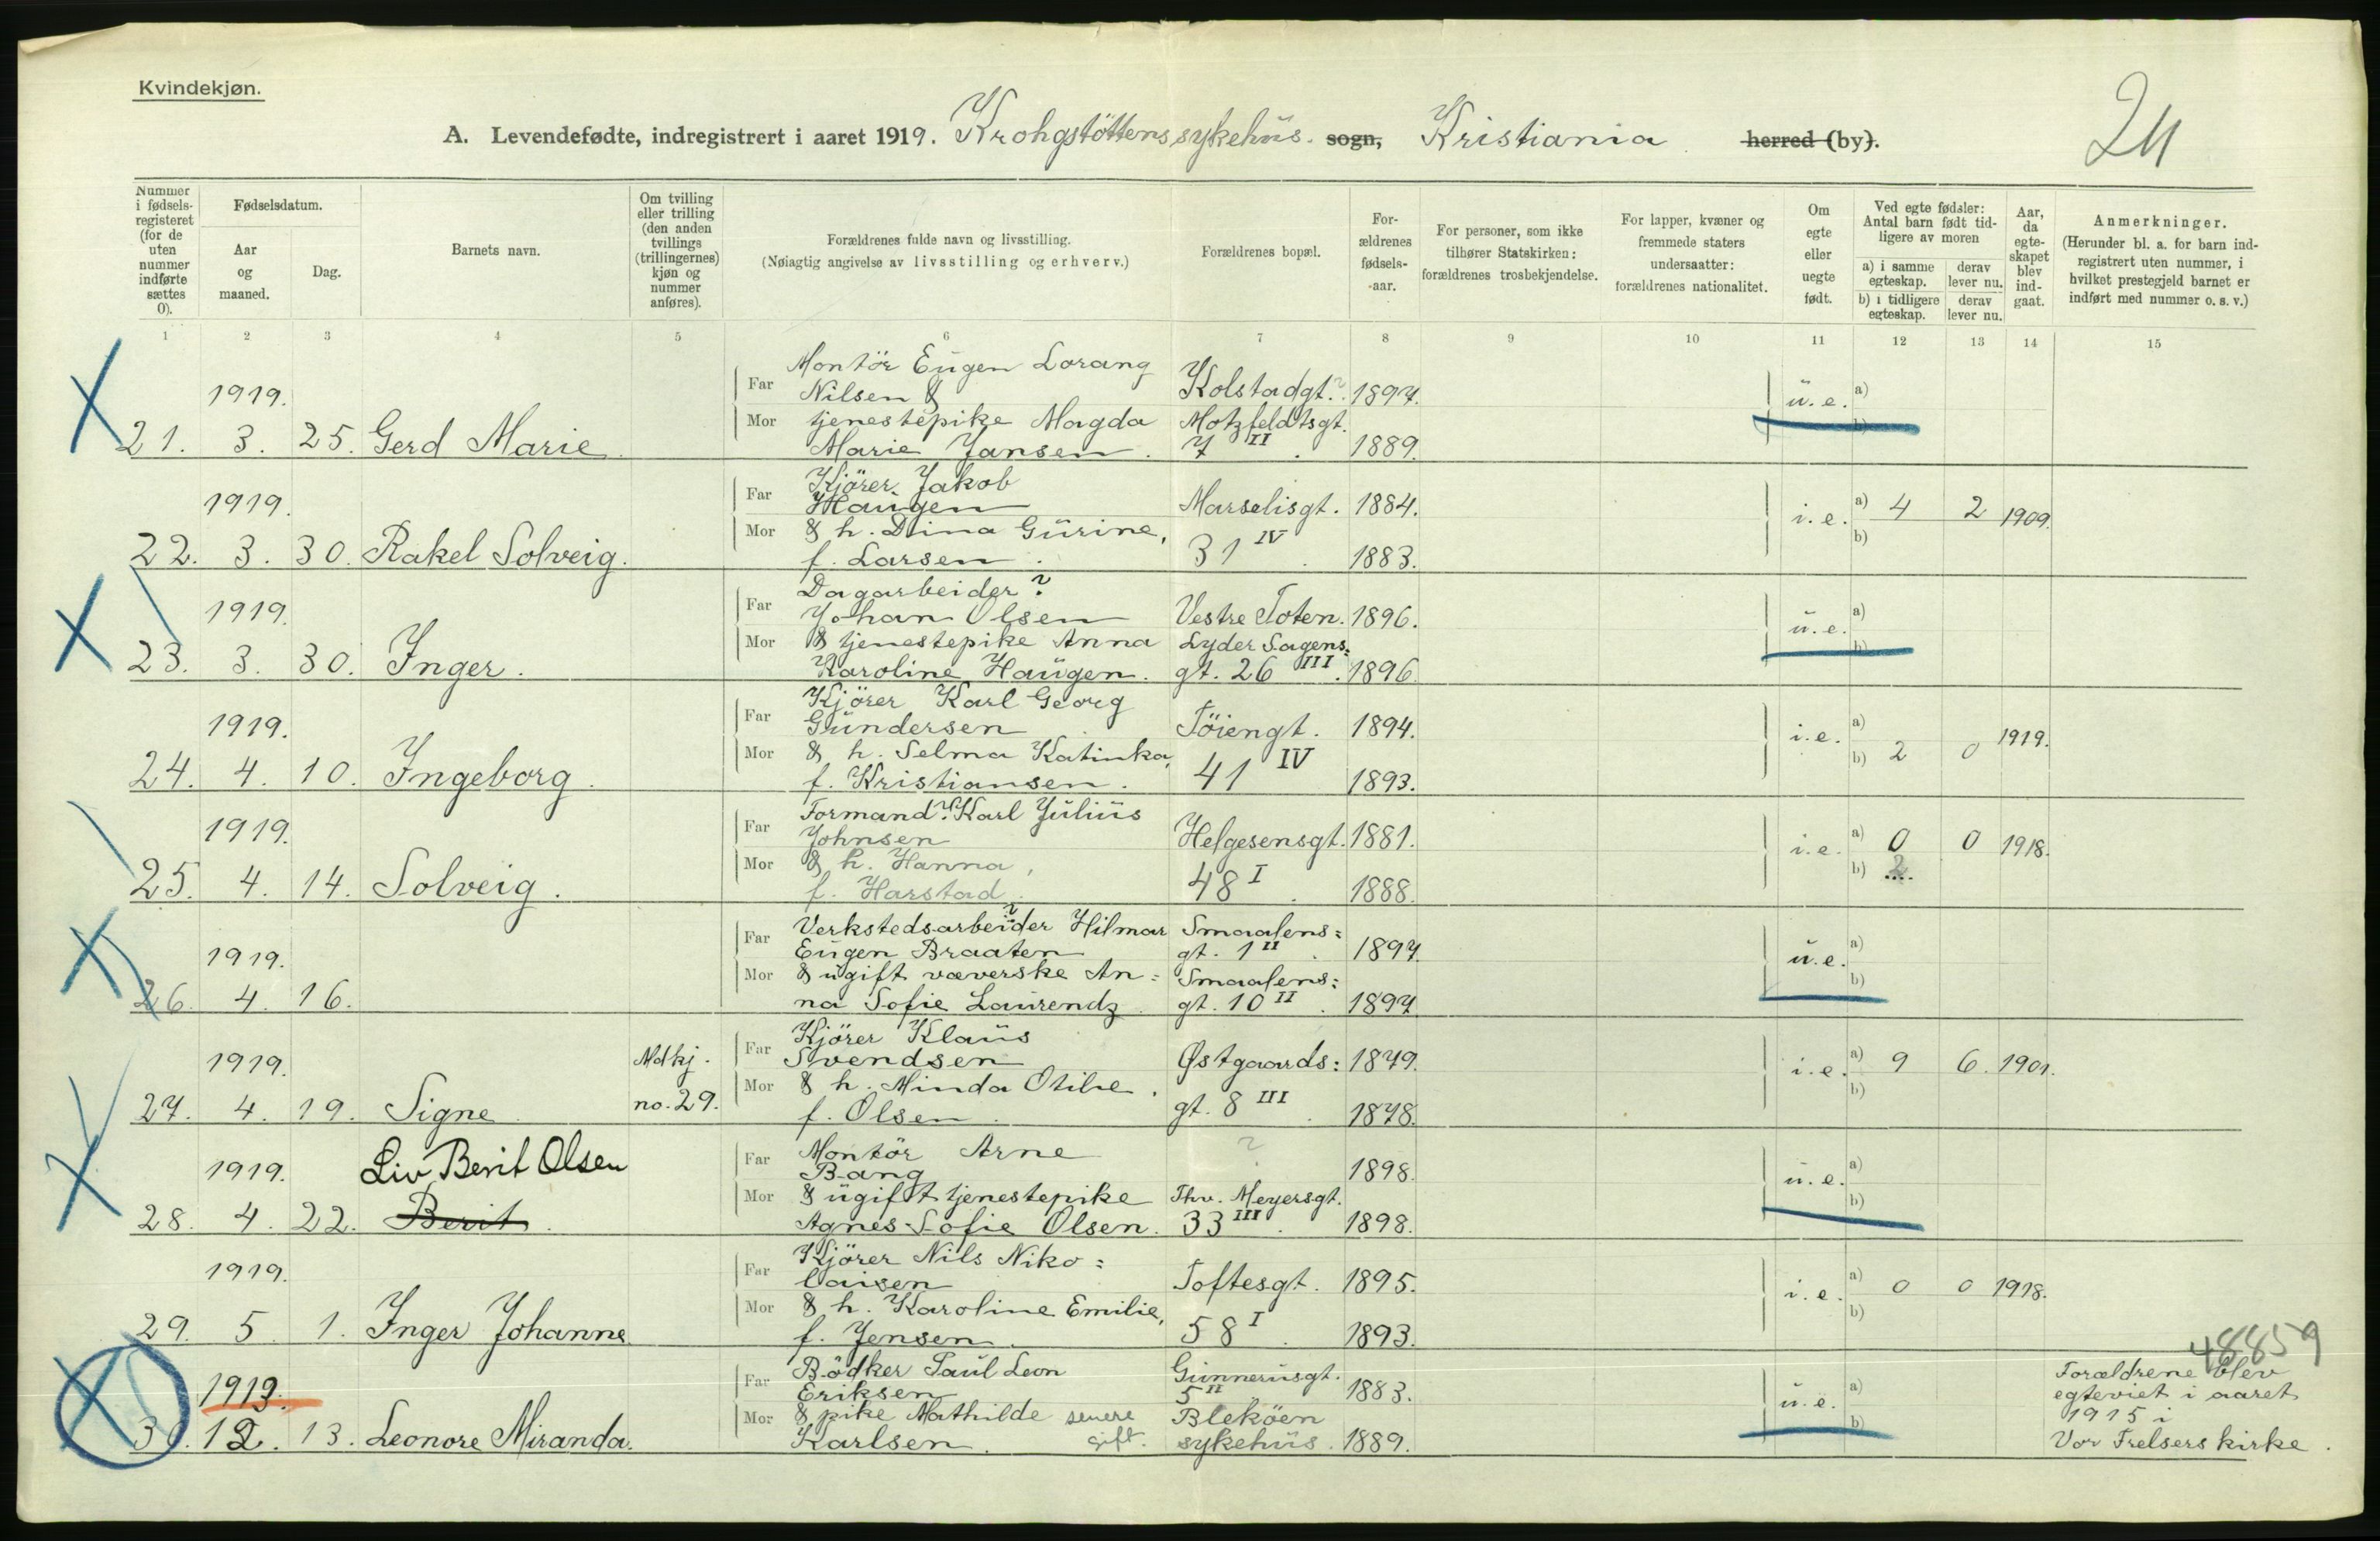 Kvindekjøn.
A. Levendefødte, indregistrert i aaret 1919. Krohgstöttens sykehus. sogn, Kristiania herred (by).
24
Nummer i fødselsregisteret (for de uten nummer indførte sættes 0).
Fødselsdatum.
Aar og maaned.
Dag.
Barnets navn.
Om tvilling eller trilling (den anden tvillings (trillingernes) kjøn og nummer anføres).
Forældrenes fulde navn og livsstilling.
(Nøiagtig angivelse av livsstilling og erhverv.)
Forældrenes bopæl.
Forældrenes fødselsaar.
For personer, som ikke tilhører Statskirken: forældrenes trosbekjendelse.
For lapper, kvæner og fremmede staters undersaatter: forældrenes nationalitet.
Om egte eller uegte født.
Ved egte fødsler: Antal barn født tidligere av moren
a) i samme egteskap.
derav lever nu.
b) i tidligere egteskap.
derav lever nu.
Aar, da egteskapet blev indgaat.
Anmerkninger.
(Herunder bl. a. for barn indregistrert uten nummer, i hvilket prestegjeld barnet er indført med nummer o. s. v.)
1 2 3 4 5 6 7 8 9 10 11 12 13 14 15
Far Montör Eugen Lorang
1919. Nilsen Kolstadgt. ? 1897. u. e. a)
Mor & tjenestepike Magda Motzfeldtsgt. b)
21. 3. 25. Gerd Marie. Marie Jansen. 7 II. 1889.
Far Kjörer Jakob
1919. Haugen Marselisgt. 1884. i. e. a) 4 2 1909.
Mor & h. Dina Gurine, b)
22. 3. 30. Rakel Solveig. f. Larsen. 31 IV. 1883.
Far Dagarbeider ?
1919. Johan Olsen Vestre Toten. 1896. u. e. a)
Mor & tjenestepike Anna Lyder Sagens= b)
23. 3. 30. Inger. Karoline Haugen. gt. 26 III. 1896.
Far Kjörer Karl Georg
1919. Gundersen Töiengt. 1894. i. e. a) 1919.
Mor & h. Selma Katinka, b) 2 0
24. 4. 10. Ingeborg. f. Kristiansen. 41 IV 1893.
Far Formand ? Karl Julius
1919. Johnsen Helgesensgt. 1881. i. e. a) 0 0 1918.
Mor & h. Hanna, b) 2
25. 4. 14. Solveig. f. Harstad. 48 I. 1888.
Far Verkstedsarbeider ? Hilmar Smaalens=
1919. Eugen Braaten gt. 1 II. 1897. u. e. a)
Mor & ugift væverske An= Smaalens= b)
26. 4. 16. na Sofie Laurendz. gt. 10 II. 1897.
Mdkj. Far Kjörer Klaus
1919. Svendsen Østgaards= 1879. i. e. a) 9 6. 1901.
Mor & h. Minda Otilie. b)
27. 4. 19. Signe. no. 29. f. Olsen. gt. 8 III. 1878.
Far Montör Arne ?
1919. Liv Berit Olsen Bang 1898. u. e. a)
Mor & ugift tjenestepike Thv. Meyersgt. b)
28. 4. 22. Berit. Agnes Sofie Olsen. 33 III. 1898.
Far Kjörer Nils Niko=
1919. laisen Toftesgt. 1895. i. e. a) 0 0 1918.
Mor & h. Karoline Emilie, b)
29. 5. 1. Inger Johanne. f. Jensen. 58 I. 1893.
48859
Far Bödker Paul Leon Gunnerusgt. Forældrene blev
1913. Eriksen 5 II 1883. u. e. a) egteviet i aaret
Mor & pike Mathilde senere Bleköen b) 1915 i
30. 12. 13. Leonore Miranda. Karlsen. gift. sykehus. 1889. Vor Frelsers kirke.